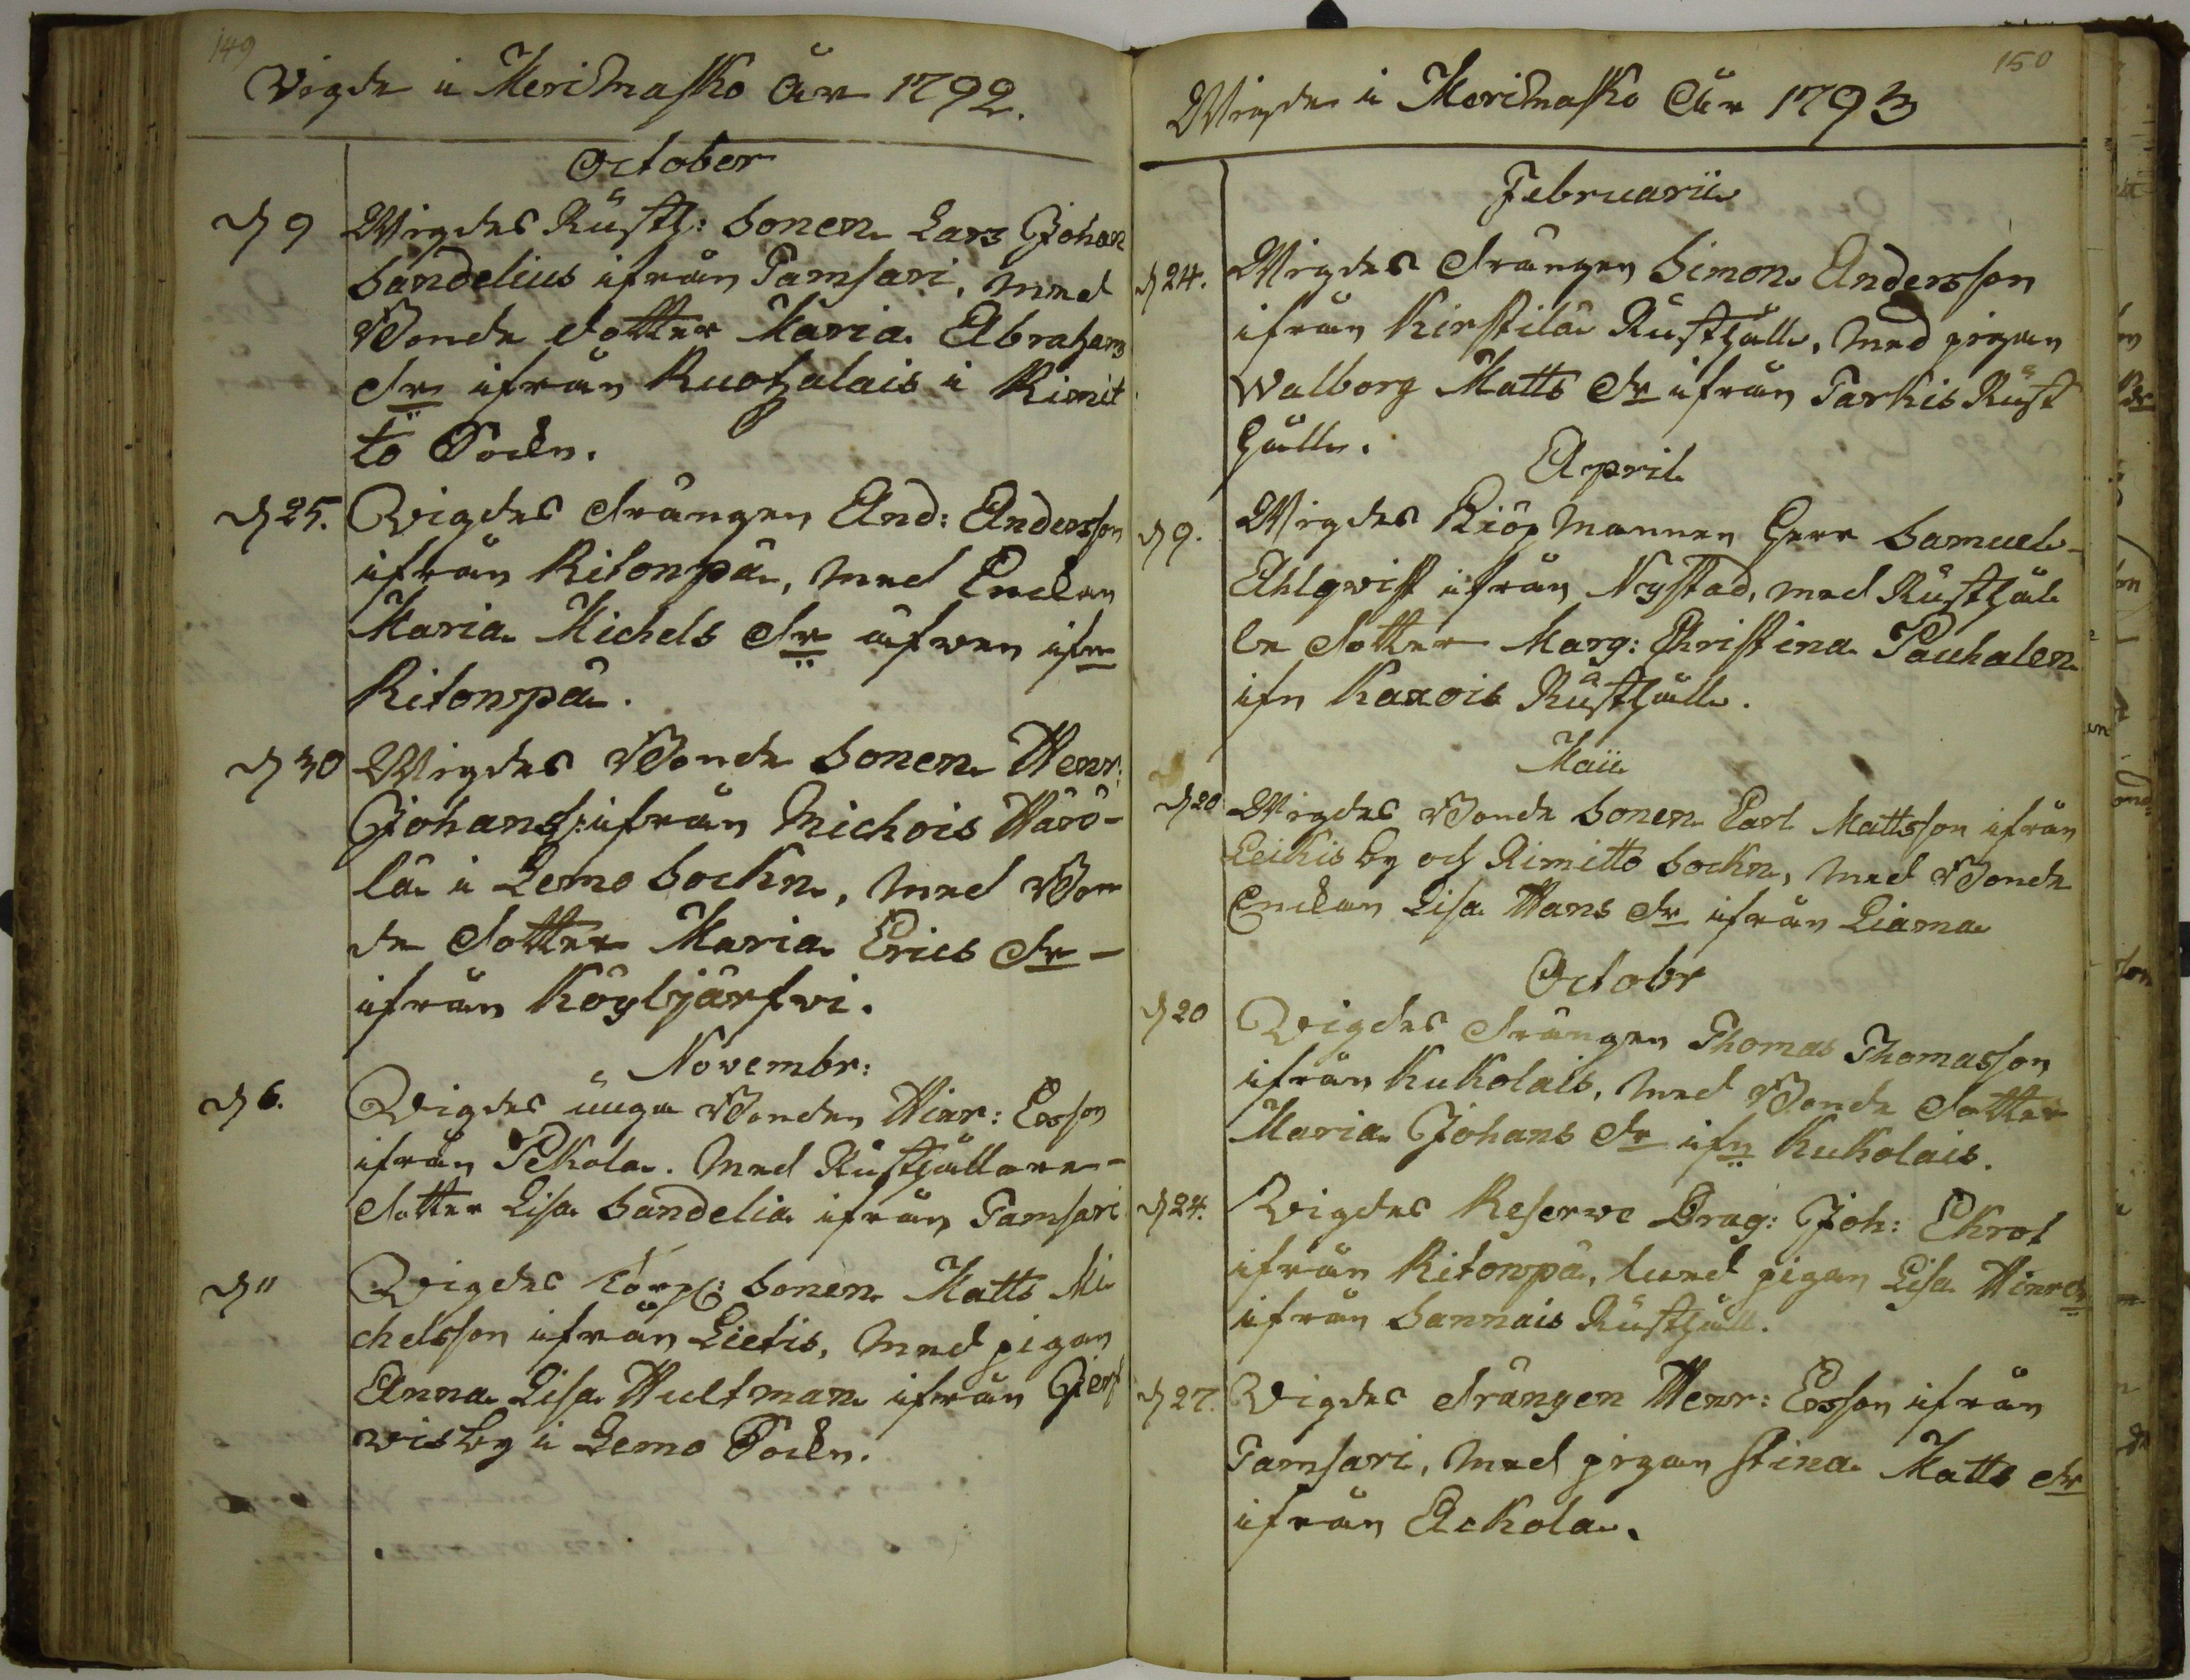 149
Vigde i Merimasko År 1792.
October
d 9 Wigdes Rusth: Sonen Lars Johan
Sandelius ifrån Tamsari, med
Bonde dotter Maria Abrahams
dr ifrån Ruohalais i Rimit
to Sockn.
d 25. Vigdes drängen And: Andersson
ifrån Ritonpä, med Enckan
Maria Michels dr äfwen ifrn
Ritonpä.
d 30 Wigdes Bonde Sonen Henr:
Johanss: ifrån Michois Härö-
lä i Lemo Sockn, med Bon
de dotter Maria Erics dr -
ifrån Köyljärfwi.
Novembr:
d 6. Vigdes unga Bonden Hinr: Ersson
ifrån Pekola. med Rusthållare-
dotter Lisa Sandelia ifrån Tamsari
d 11 Vigdes Torp: Sonen Matts Mi
chelsson ifrån Lietis, med pigan
Anna Lisa Hultman ifrån Gierf
wisby i Lemo Sockn.
150
Wigde i Merimasko År 1793
Februarii
d 24. Wigdes drängen Simon Andersson
ifrån Kirstilä Rusthåll, med pigan
Walborg Matts dr ifrån Tarkis Rust
håll.
April
d 9. Wigdes Kiöpmannen Herr Samuel
Ahlqwist ifrån Nystad, med Rusthål
le dotter Marg: Christina Pauhalen
ifn Karois Rusthåll.
Maii
d 20 Wigdes Bonde Sonen Carl Mattsson ifrån
Leikis by och Rimitto Sockn, med Bonde
Enckan Lisa Hans dr ifrån Liama
Octobr
d 20 Vigdes drängen Thomas Thomasson
ifrån Kukolais, med Bonde dotter
Maria Johans dr ifn Kukolais.
d 24. Vigdes Reserve Drag: Joh: Ekrot
ifrån Ritonpä, med pigan Lisa Hinr dr
ifrån Sannais Rusthåll.
d 27. Vigdes drängen Henr: Ersson ifrån
Tamsari, med pigan Stina Matts dr
ifrån Ackola.